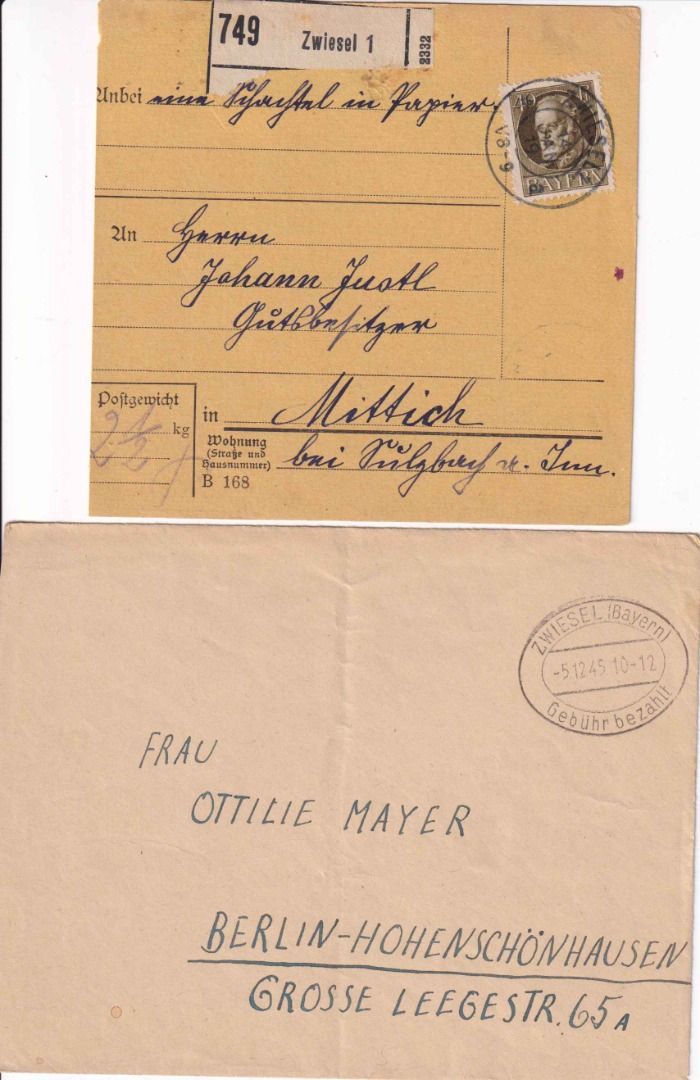 749 Zwiesel 1 2332
Anbei eine Schachtel in Papier.
40
BAYERN
ZWIESEL
V8-9
An Herrn
Johann Justl
Gutsbesitzer
Postgewicht
2½ kg
in Mittich
Wohnung
(Straße und
Hausnummer)
bei Sulzbach a. Inn.
B 168
ZWIESEL (Bayern)
-5.12.45 10-12
Gebühr bezahlt
FRAU
OTTILIE MAYER
BERLIN-HOHENSCHÖNHAUSEN
GROSSE LEEGESTR. 65A